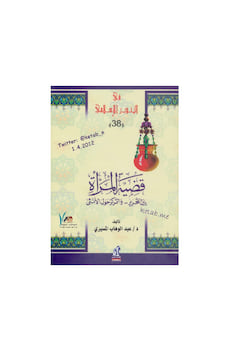 في
التنوير الإسلامي
«38»
Twitter: @ketab_n
1.4.2012
قضية المرأة
بين التحرير.. والتمركز حول الأنثى
ktab.me
تأليف
د/ عبد الوهاب المسيري